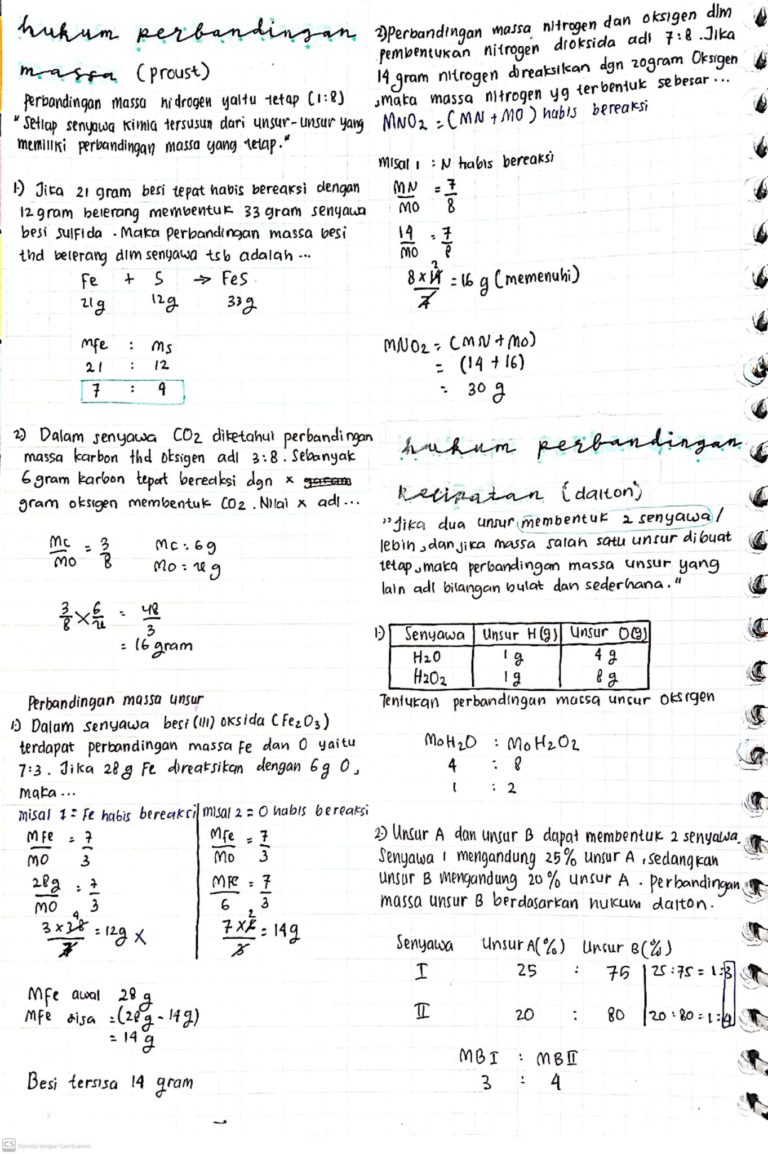 hukum perbandingan
massa (proust)
Perbandingan massa hidrogen yaitu tetap (1:8)
"Setiap senyawa kimia tersusun dari unsur-unsur yang
memiliki perbandingan massa yang tetap."
1) Jika 21 gram besi tepat habis bereaksi dengan
12 gram belerang membentuk 33 gram senyawa
besi sulfida. Maka perbandingan massa besi
thd belerang dlm senyawa tsb adalah...
Fe + S → FeS
21g 12g 33g
Mfe : Ms
21 : 12
7 : 4
2) Dalam senyawa CO2 diketahui perbandingan
massa karbon thd oksigen adl 3:8. Sebanyak
6 gram karbon tepat bereaksi dgn x
gram oksigen membentuk CO2. Nilai x adl...
Mc/MO = 3/8 Mc : 6g
MO : x g
3/8 × 6/x = 48/3
= 16 gram
Perbandingan massa unsur
1) Dalam senyawa besi (III) oksida (Fe2O3)
terdapat perbandingan massa Fe dan O yaitu
7:3. Jika 28g Fe direaksikan dengan 6g O,
maka...
misal 1 = Fe habis bereaksi
MFe/MO = 7/3
28g/MO = 7/3
3 × 28/7 4 = 12g x
misal 2 = O habis bereaksi
MFe/MO = 7/3
MFe/6 = 7/3
7 × 6/3 2 = 14g
MFe awal 28 g
MFe sisa = (28g - 14g)
= 14 g
Besi tersisa 14 gram
2) Perbandingan massa nitrogen dan oksigen dlm
pembentukan nitrogen dioksida adl 7:8. Jika
14 gram nitrogen direaksikan dgn 20gram Oksigen
,maka massa nitrogen yg terbentuk sebesar...
MNO2 = (MN + MO) habis bereaksi
misal 1 : N habis bereaksi
MN/MO = 7/8
14/MO = 7/8
8 × 14/7 2 = 16 g (memenuhi)
MNO2 = (MN + MO)
= (14 + 16)
= 30 g
hukum perbandingan
kelipatan (dalton)
"Jika dua unsur membentuk 2 senyawa/
lebih, dan jika massa salah satu unsur dibuat
tetap, maka perbandingan massa unsur yang
lain adl bilangan bulat dan sederhana."
1) Senyawa Unsur H(g) Unsur O(g)
H2O 1 g 4 g
H2O2 1 g 8 g
Tentukan perbandingan massa unsur oksigen
MoH2O : MoH2O2
4 : 8
1 : 2
2) Unsur A dan unsur B dapat membentuk 2 senyawa.
Senyawa 1 mengandung 25% unsur A, sedangkan
unsur B mengandung 20% unsur A. Perbandingan
massa unsur B berdasarkan hukum dalton.
Senyawa Unsur A(%) Unsur B(%)
I 25 : 75 25:75 = 1:3
II 20 : 80 20:80 = 1:4
MBI : MBII
3 : 4
CS Dipindai dengan CamScanner